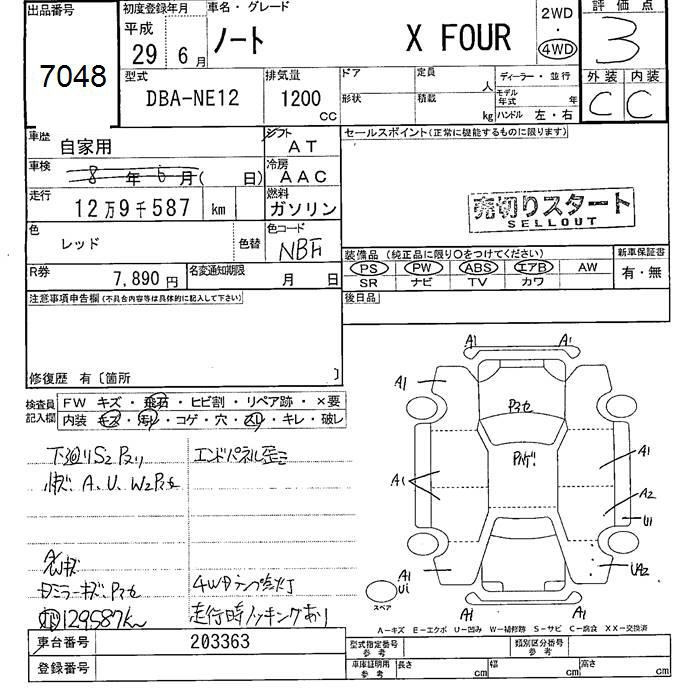 出品番号
7048
初度登録年月
平成
29 6月
車名・グレード
ノート X FOUR
2WD
・
4WD
評価点
3
外装 内装
C C
型式
DBA-NE12
排気量
1200
CC
ドア
形状
定員
人
積載
kg
ディーラー・並行
モデル年式 年
ハンドル 左・右
車歴
自家用
シフト
AT
車検
8年6月( 日)
冷房
AAC
走行
12万9千587 km
燃料
ガソリン
色
レッド
色替
色コード
NBF
R券
7,890円
名変通知期限
月 日
セールスポイント(正常に機能するものに限ります)
売切りスタート
SELLOUT
装備品 (純正品に限り○をつけてください)
PS PW ABS エアB AW
SR ナビ TV カワ
新車保証書
有・無
後日品
注意事項申告欄(不具合内容等は具体的に記入して下さい)
修復歴 有〔箇所 〕
検査員
記入欄
FW キズ・飛石・ヒビ割・リペア跡・×要
内装 キズ・汚れ・コゲ・穴・スレ・キレ・破レ
下廻りS2
A、U、W2
エンドパネル歪ミ
ミラーキズ
129587km
4WDランプ点灯
走行時ノッキングあり
A1 A1
A1 A1
A1
A1
A2
U1
UA2
A1
U1
A1 A1
スペア
A-キズ E-エクボ U-凹み W-補修跡 S-サビ C-腐食 XX-交換済
車台番号
203363
登録番号
型式指定番号
参考
類別区分番号
参考
車庫証明用
参考
長さ cm
幅 cm
高さ cm